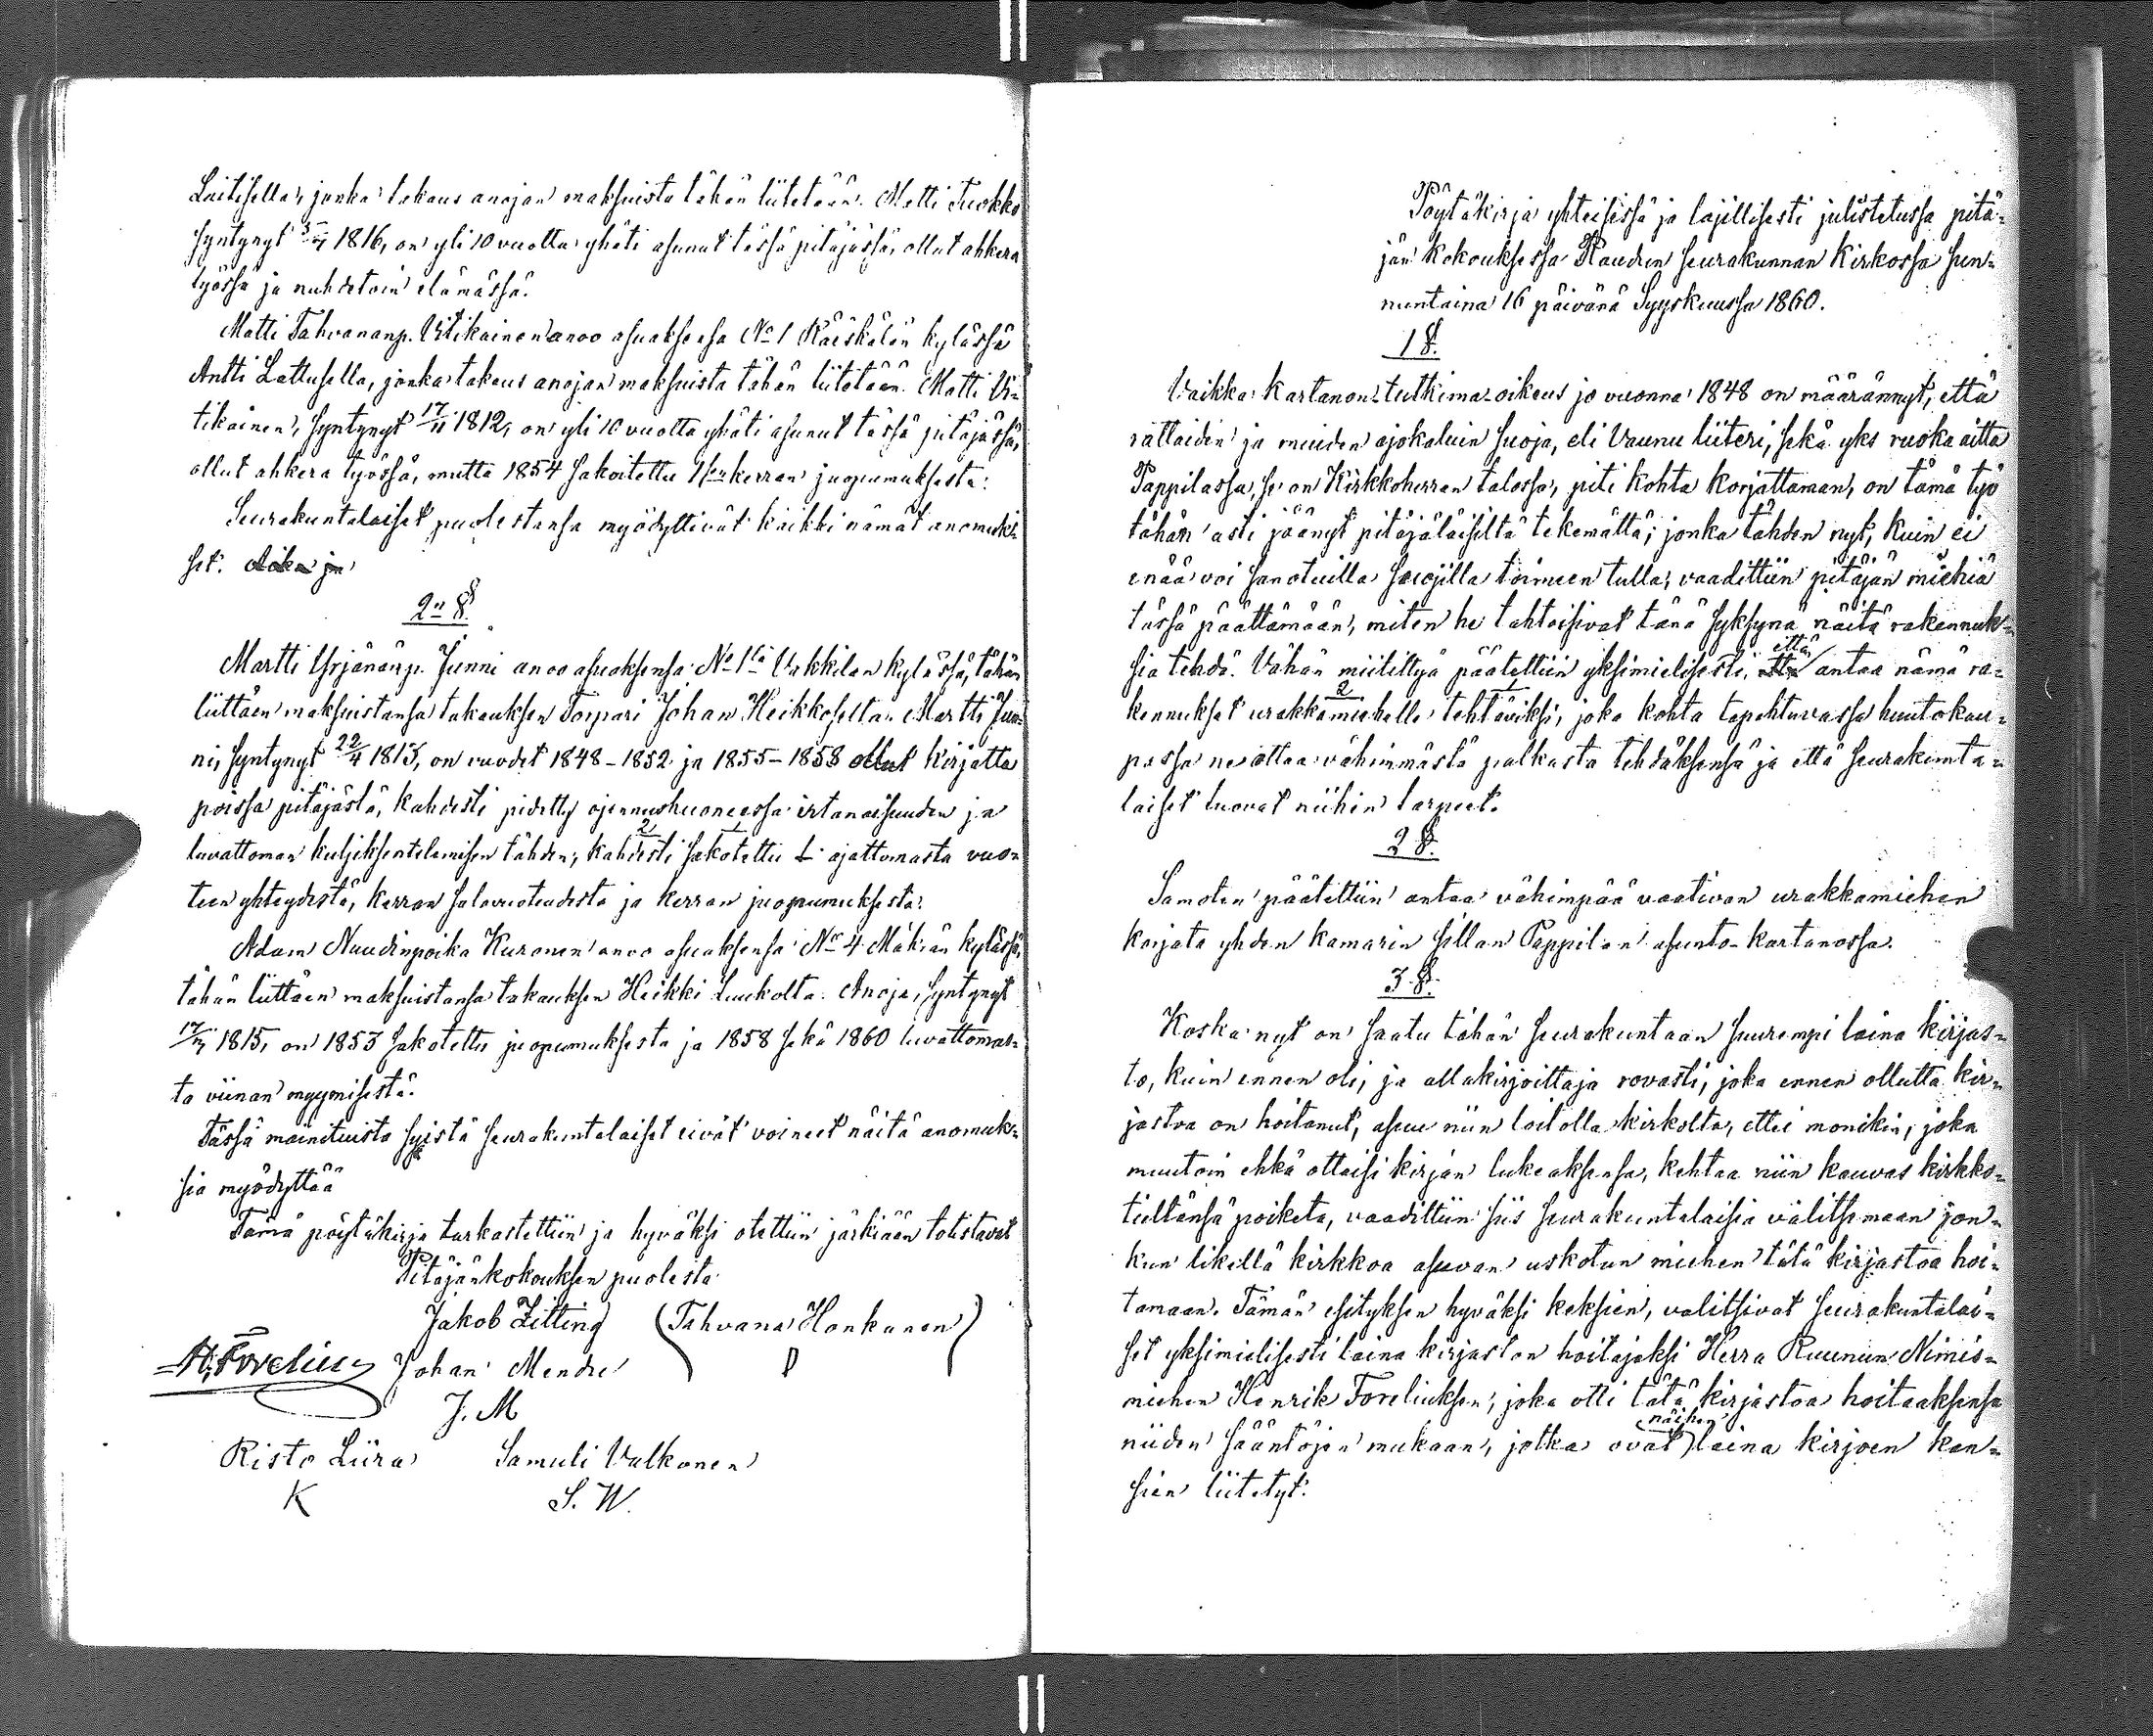 Laitisella, jonka takaus anojan maksuista tähän liitetään. Matti Tuokko
syntynyt 1816, on yli 10 vuotta yhäti asunut tässä pitäjässä, ollut ahkera
työssä ja nuhdetoin elämässä.
Matti Tahvananp. Utikainen anoo asuaksensa No 1 Räiskälän kylässä
Antti Lattusella, jonka takaus anojan maksuista tähän liitetään. Matti U-
tikainen, syntynyt 17/11 1812, on yli 10 vuotta yhäti asunut tässä pitäjässä,
ollut ahkera työssä, mutta 1854 sakoitettu 1sen kerran juopumuksesta.
Seurakuntalaiset puolestansa myödyttivät kaikki nämät anomuk-
set.
2n §
Martti Yrjänänp. Junni anoo asuaksensa No 1lä Vakkilan kylässä, tähän
liittäen maksuistansa takauksen Torpari Johan Heikkoselta. Martti Jun-
ni, syntynyt 22/4 1813, on vuodet 1848-1852 ja 1855-1858 ollut kirjatta
poissa pitäjästä, kahdesti pidetty ojennushuoneessa irtonaisuuden ja
luvattoman kuljeksentelemisen tähden, kahdesti sakotettu ajattomasta vuo-
teen yhteydestä, kerran salavuoteudesta ja kerran juopumuksesta.
Adam Nuudinpoika Kuronen anoo asuaksensa No 4 Mäkrän kylässä,
tähän liittäen maksuistansa takauksen Heikki Luukolta. Anoja, syntynyt
1815, on 1853 sakotettu juopumuksesta ja 1858 sekä 1860 luvattomas-
ta viinan myymisestä.
Tässä mainituista syistä seurakuntalaiset eivät voineet näitä anomuk-
sia myödyttää
Tämä pöytäkirja tarkastettiin ja hyväksi otettiin järkiään totistavat
Pitäjänkokouksen puolesta
Jakob Zitting (Tahvana Honkanen)
H. Forelius Johan Mendre
J. M
Risto Liira Samuli Valkonen
K S. W.
Pöytäkirja yhteisessä ja lajillisesti julistetussa pitä-
jän kokouksessa Raudun seurakunnan Kirkossa sun-
nuntaina 16 päivänä Syyskuussa 1860.
1 §.
Vaikka Kartanon-tutkima-oikeus jo vuonna 1848 on määrännyt, että
rattaiden ja muiden ajokaluin suoja, eli Vaunu liiteri, sekä yks ruoka aitta
Pappilassa, se on Kirkkoherran talossa, piti kohta korjattaman, on tämä työ
tähän asti jäänyt pitäjäläisiltä tekemättä; jonka tähden nyt, kuin ei
enää voi sanotuilla suojilla toimeen tulla, vaadittiin pitäjän miehiä
tässä päättämään, miten he tahtoisivat tänä syksynä näitä rakennuk-
sia tehdä. Vähän miilittyä päätettiin yksimielisesti, että antaa nämä ra-
kennukset urakkamiehelle tehtäviksi, joka kohta tapahtuvassa huutokau-
passa ne ottaa vähimmästä palkasta tehdäksensä ja että seurakunta-
laiset tuovat niihin tarpeet.
2 §.
Samoten päätettiin antaa vähimpää vaativan urakkamiehen
korjata yhden kamarin sillan Pappilan asunto-kartanossa.
3 §.
Koska nyt on saatu tähän seurakuntaan suurempi laina kirjas-
to, kuin ennen oli, ja allakirjoittaja rovasti, joka ennen ollutta kir-
jastoa on hoitanut, asuu niin loitolla kirkolta, ettei monikin, joka
muutoin ehkä ottaisi kirjan lukeaksensa, kehtaa niin kauvas kirkko-
tieltänsä poiketa, vaadittiin siis seurakuntalaisia valitsemaan jon-
kun likellä kirkkoa asuvan uskotun miehen tätä kirjastoa hoi-
tamaan. Tämän esityksen hyväksi keksien, valitsivat seurakuntalai-
set yksimielisesti laina kirjaston hoitajaksi Herra Ruunun Nimis-
miehen Henrik Foreliuksen; joka otti tätä kirjastoa hoitaaksensa
niiden sääntöjen mukaan, jotka ovat näihen laina kirjoen kan-
sien liitetyt.